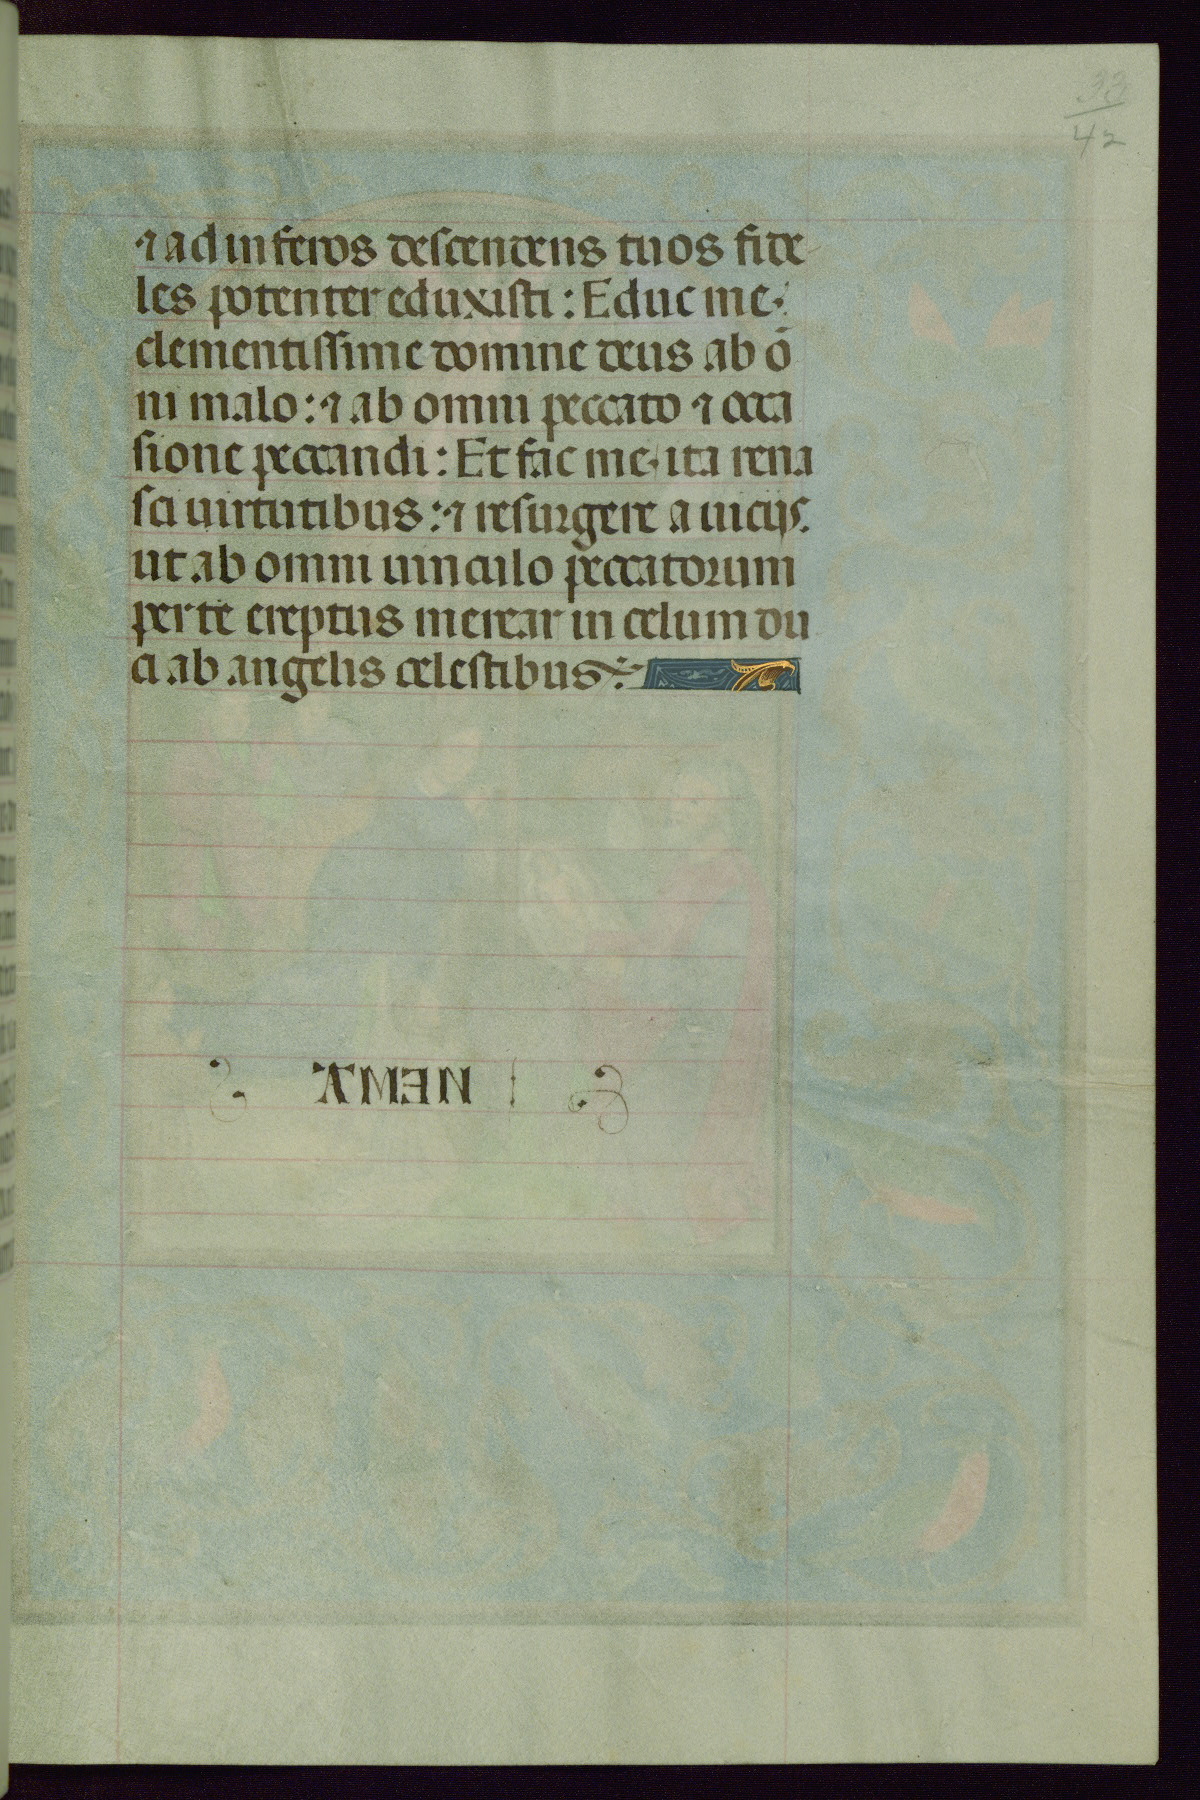 33
42
⁊ ad inferos descendens tuos fide
les potenter eduxisti : Educ me
clementissime domine deus ab o̅
ni malo : ⁊ ab omni peccato ⁊ occa
sione peccandi : Et fac me ita rena
sci uirtutibus : ⁊ resurgere a uicijs.
ut ab omni uinculo peccatorum
per te ereptus merear in celum du
ci ab angelis celestibus
AMEN